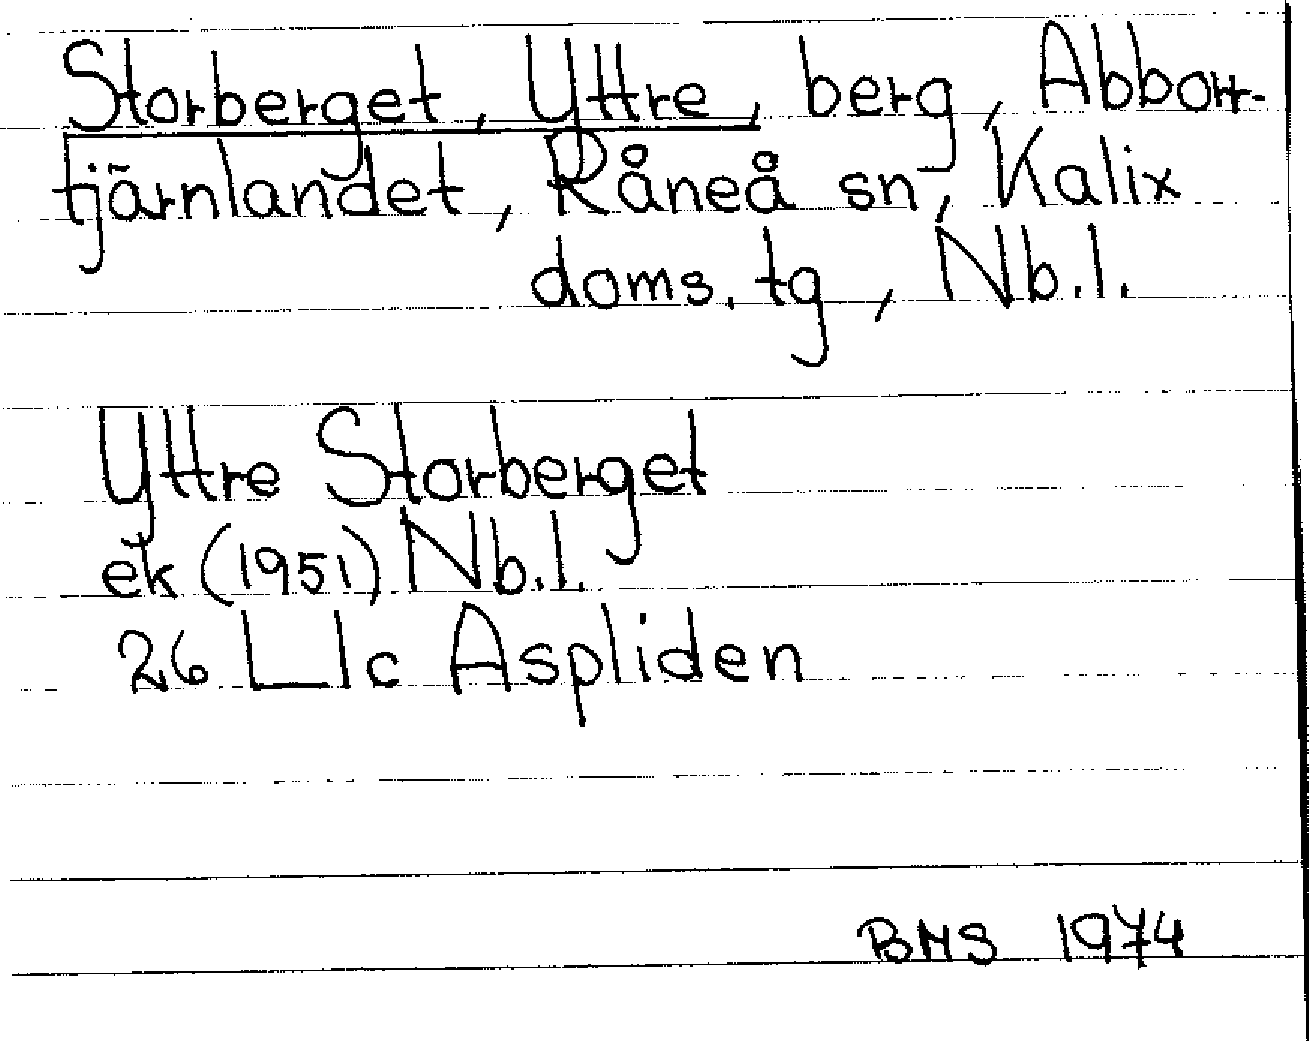 Storberget, Yttre, berg, Abborr-
tjärnlandet, Råneå sn, Kalix
doms. tg, Nb.l.
Yttre Storberget
ek (1951) Nb.l.
26 L Ic Aspliden
BMS 1974